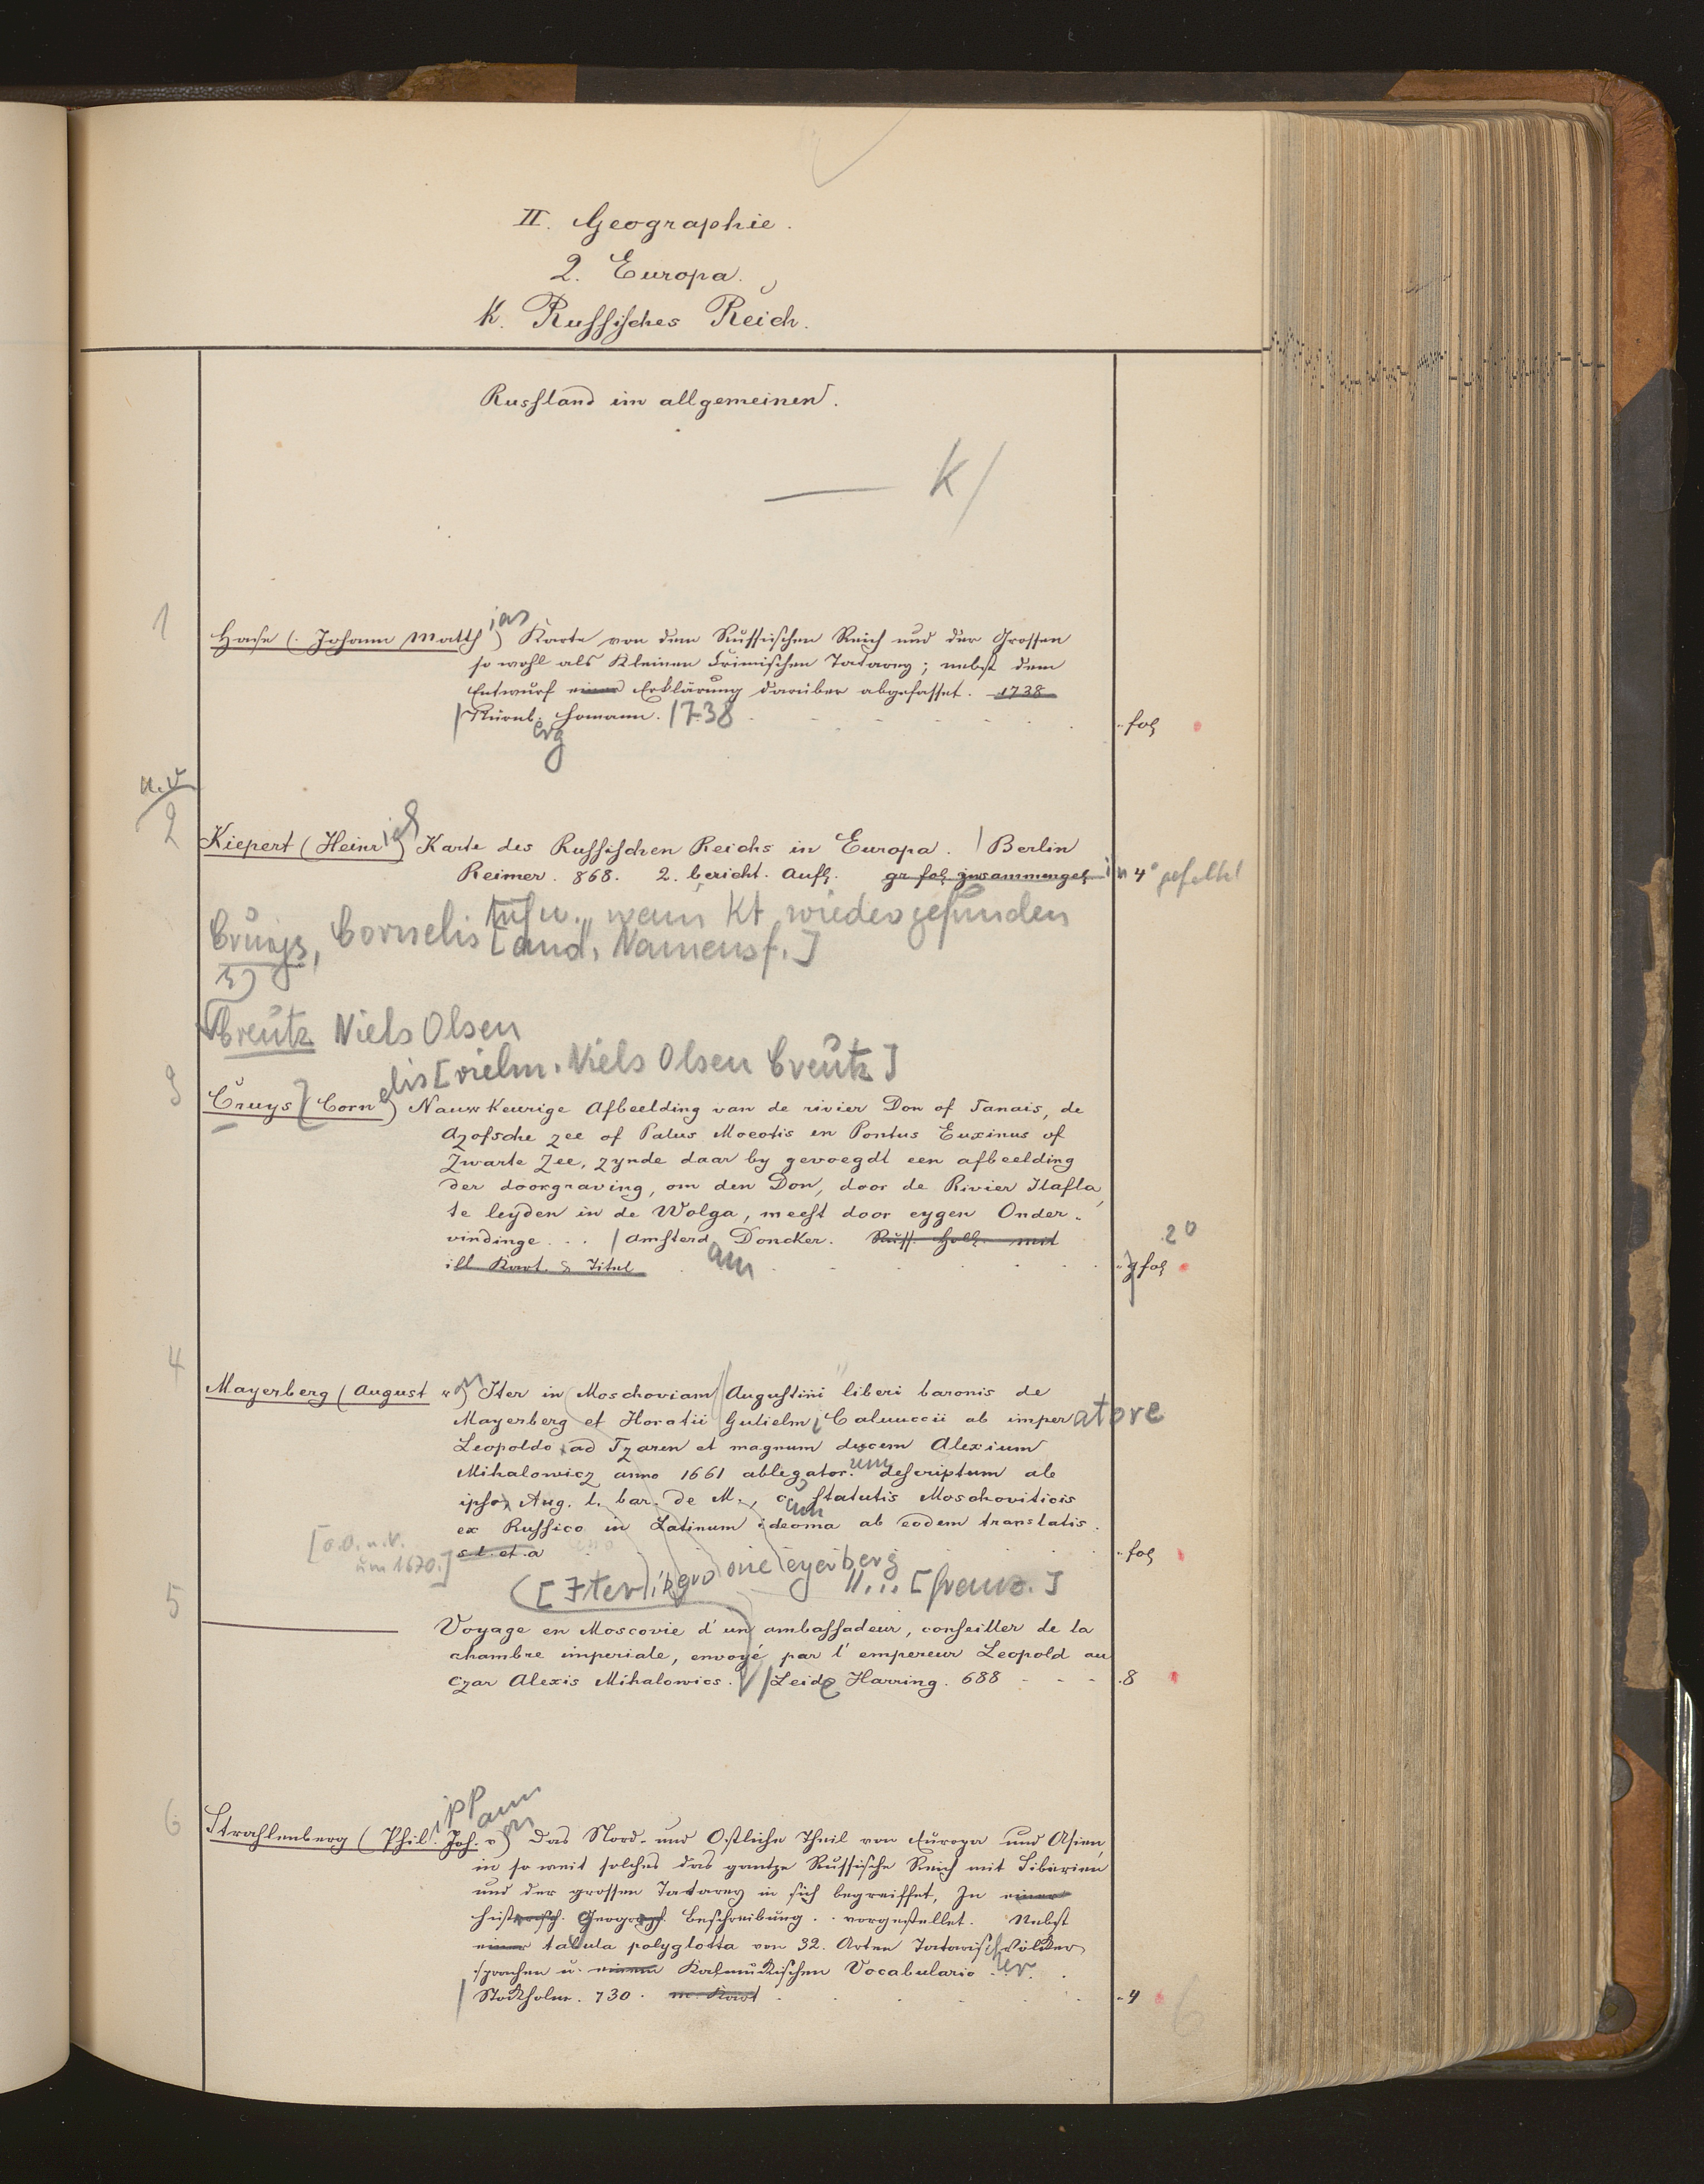 II. Geographie.
2. Europa.
K. Russisches Reich.
Russland im allgemeinen.
K/
1
Hase (Johann Matthias) Karte von dem Russischen Reich und der Grossen
so wohl als Kleinen Crimischen Tatarey; nebst dem
Entwurf einer Erklärung darüber abgefasset. 1738
/ Nürnb.erg Homann. 1738
fol
n.v.
2
Kiepert (Heinrich) Karte des Russischen Reichs in Europa. / Berlin
Reimer. 868. 2. bericht. Aufl. gr fol zusammengel in 4° gefaltet
wenn Kt wiedergefunden
Cruys, Cornelis [and. Namensf.]
3)
Creutz Niels Olsen
3
Cruys (Cornelis [vielm. Niels Olsen Creutz]) Nauw Keurige Afbeelding van de rivier Don of Tanais, de
Azofsche zee of Palus Moeotis en Pontus Euxinus of
Zwarte Zee, zynde daar by gevoegdt een afbeelding
der doorgraving, om den Don, door de Rivier Ilafla
te leyden in de Wolga, meest door eygen Onder-
vindinge ... / Amsterdam Doncker. Russ. Holl. mit
ill Kart. & Titul
2°
g fol
4
Mayerberg (August v) Iter in Moschoviam Augustini liberi baronis de
Mayerberg et Horatii Gulielmi Caluuccii ab imperatore
Leopoldo ad Tzaren et magnum ducem Alexium
Mihalowicz anno 1661 ablegatorum descriptum ab
ipso, Aug. l. bar. de M., cum statutis Moschoviticis
ex Russico in Latinum ideoma ab eodem translatis.
s.l. et a
fol
[o.O.u.V.
um 1670.]
([Iter ... [franz.]
5
Voyage en Moscovie d'un ambassadeur, conseiller de la
chambre imperiale, envoyé par l'empereur Leopold au
czar Alexis Mihalowics. / Leide Harring. 688
8
6
Strahlenberg (Philipp Johann von) Das Nord- und Ostliche Theil von Europa und Asien,
in so weit solches das gantze Russische Reich mit Siberien
und der grossen Tatarey in sich begreiffet, In einer
historisch. Geograph. Beschreibung .. vorgestellet. Nebst
einer tabula polyglotta von 32. Arten Tatarischer Völker
sprachen u. einem Kalmuckischen Vocabulario
/ Stockholm. 730. m. Kart
4
6